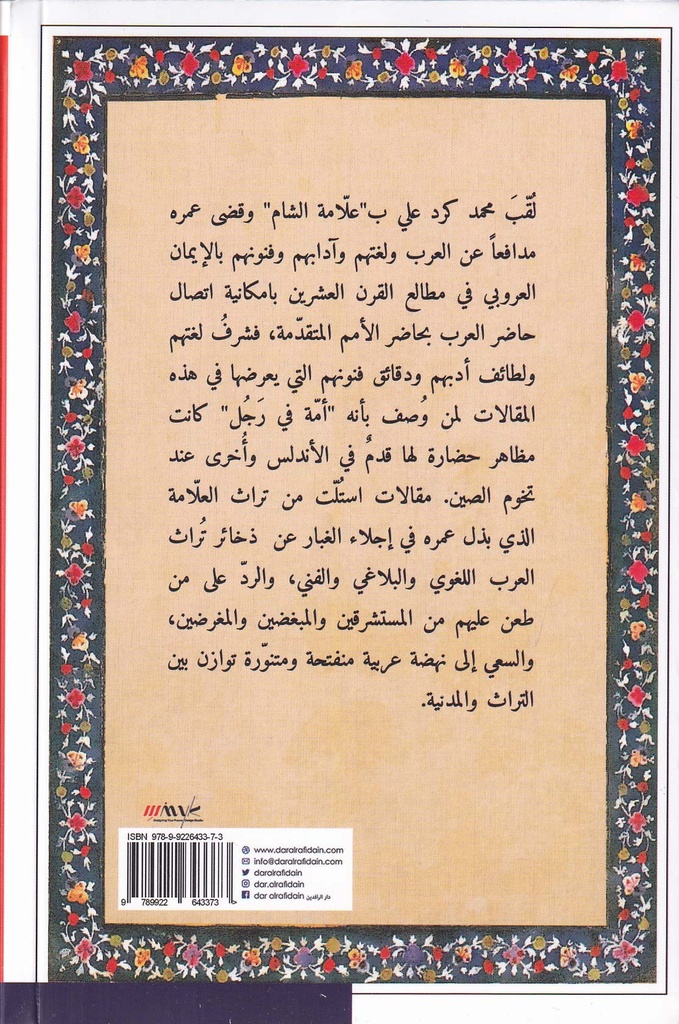 لُقّبَ محمد كرد علي ب"علّامة الشام" وقضى عمره
مدافعاً عن العرب ولغتهم وآدابهم وفنونهم بالإيمان
العروبي في مطالع القرن العشرين بامكانية اتصال
حاضر العرب بحاضر الأمم المتقدّمة، فشرفُ لغتهم
ولطائف أدبهم ودقائق فنونهم التي يعرضها في هذه
المقالات لمن وُصف بأنه "أمّة في رَجُل" كانت
مظاهر حضارة لها قدمٌ في الأندلس وأُخرى عند
تخوم الصين. مقالات استُلّت من تراث العلّامة
الذي بذل عمره في إجلاء الغبار عن ذخائر تُراث
العرب اللغوي والبلاغي والفني، والردّ على من
طعن عليهم من المستشرقين والمبغضين والمغرضين،
والسعي إلى نهضة عربية منفتحة ومتنوّرة توازن بين
التراث والمدنية.
ISBN 978-9-9226433-7-3
9 789922 643373
www.daralrafidain.com
info@daralrafidain.com
daralrafidain
dar.alrafidain
dar alrafidain دار الرافدين